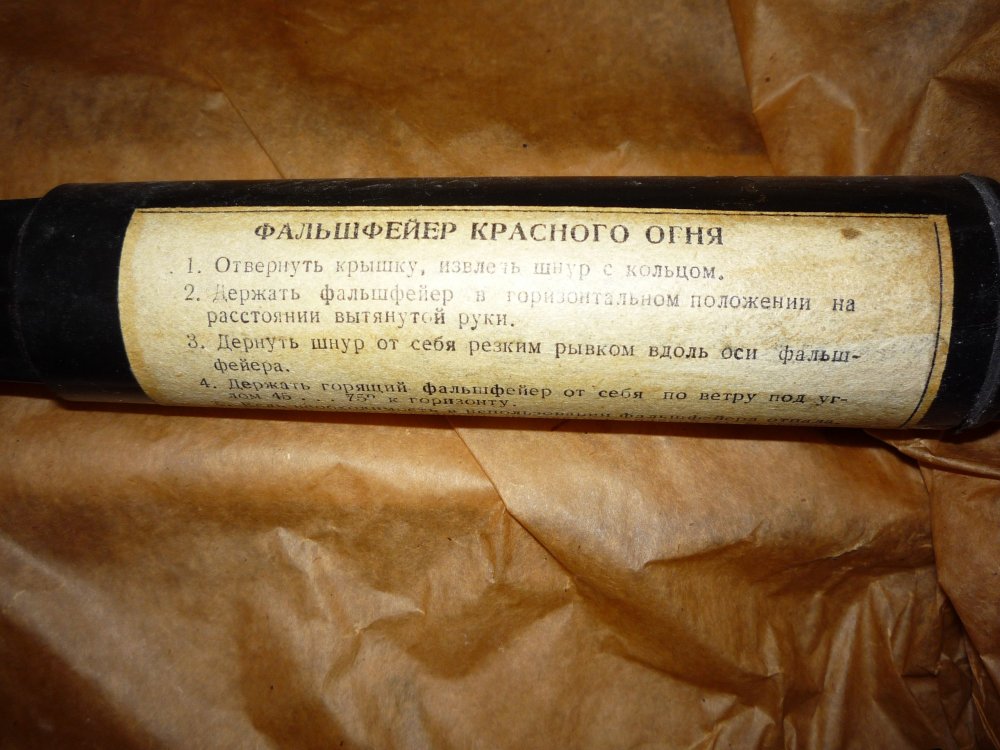 ФАЛЬШФЕЙЕР КРАСНОГО ОГНЯ
1. Отвернуть крышку, извлечь шнур с кольцом.
2. Держать фальшфейер в горизонтальном положении на
расстоянии вытянутой руки.
3. Дернуть шнур от себя резким рывком вдоль оси фальш-
фейера.
4. Держать горящий фальшфейер от себя по ветру под уг-
лом 45 . . . 75° к горизонту.
в использовании фальшфейера отпала